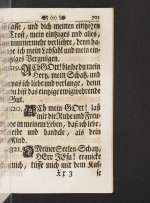 ( o ) 701
lasse, und dich meinen eintzigen
Trost, mein eintziges und alles,
nimmermehr verliehre, denn da-
be ich mein Labsahl und mein ein-
ziges Vergnügen.
ACh GOtt! bleibe du mein
Hertz, mein Schatz, und
was ich liebe und verlange, denn
du bist das eintzige ewigwehrende
Gut.
ACh mein GOtt! laß
mir die Ruhe und Freu-
de in meinem Leben, daß ich lebe,
leide und handele, als dein
Kind.
321. Meiner Seelen Schatz,
HErr JEsu! erquicke
küsse mich mit dem Kuß
Xx 3 se